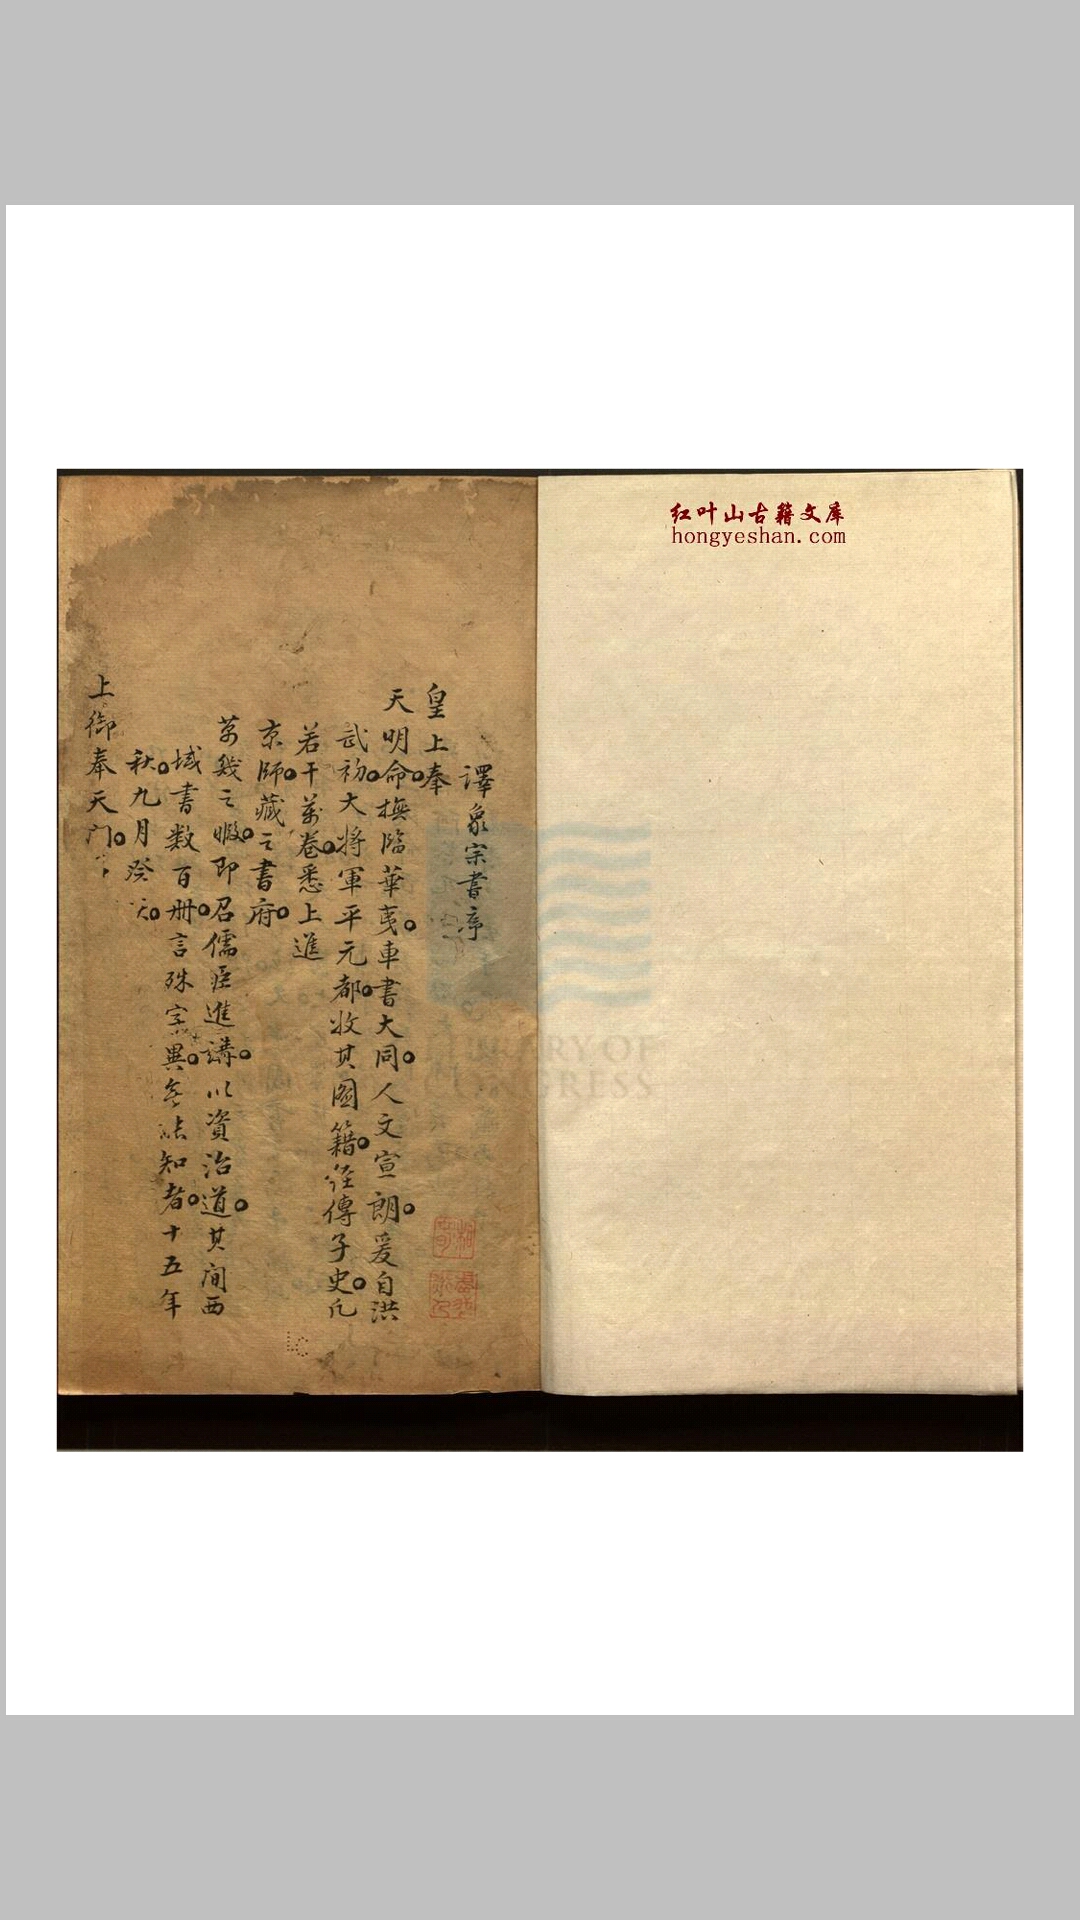 红叶山古籍文库
hongyeshan.com
譯象宗書序
皇上奉
天明命撫臨華夷車書大同人文宣朗爰自洪
武初大將軍平元都收其圖籍經傳子史凡
若干萬卷悉上進
京師藏之書府
萬幾之暇即召儒臣進講以資治道其间西
域書数百册言殊字異無能知者十五年
秋九月癸亥
上御奉天門
LIBRARY OF
CONGRESS